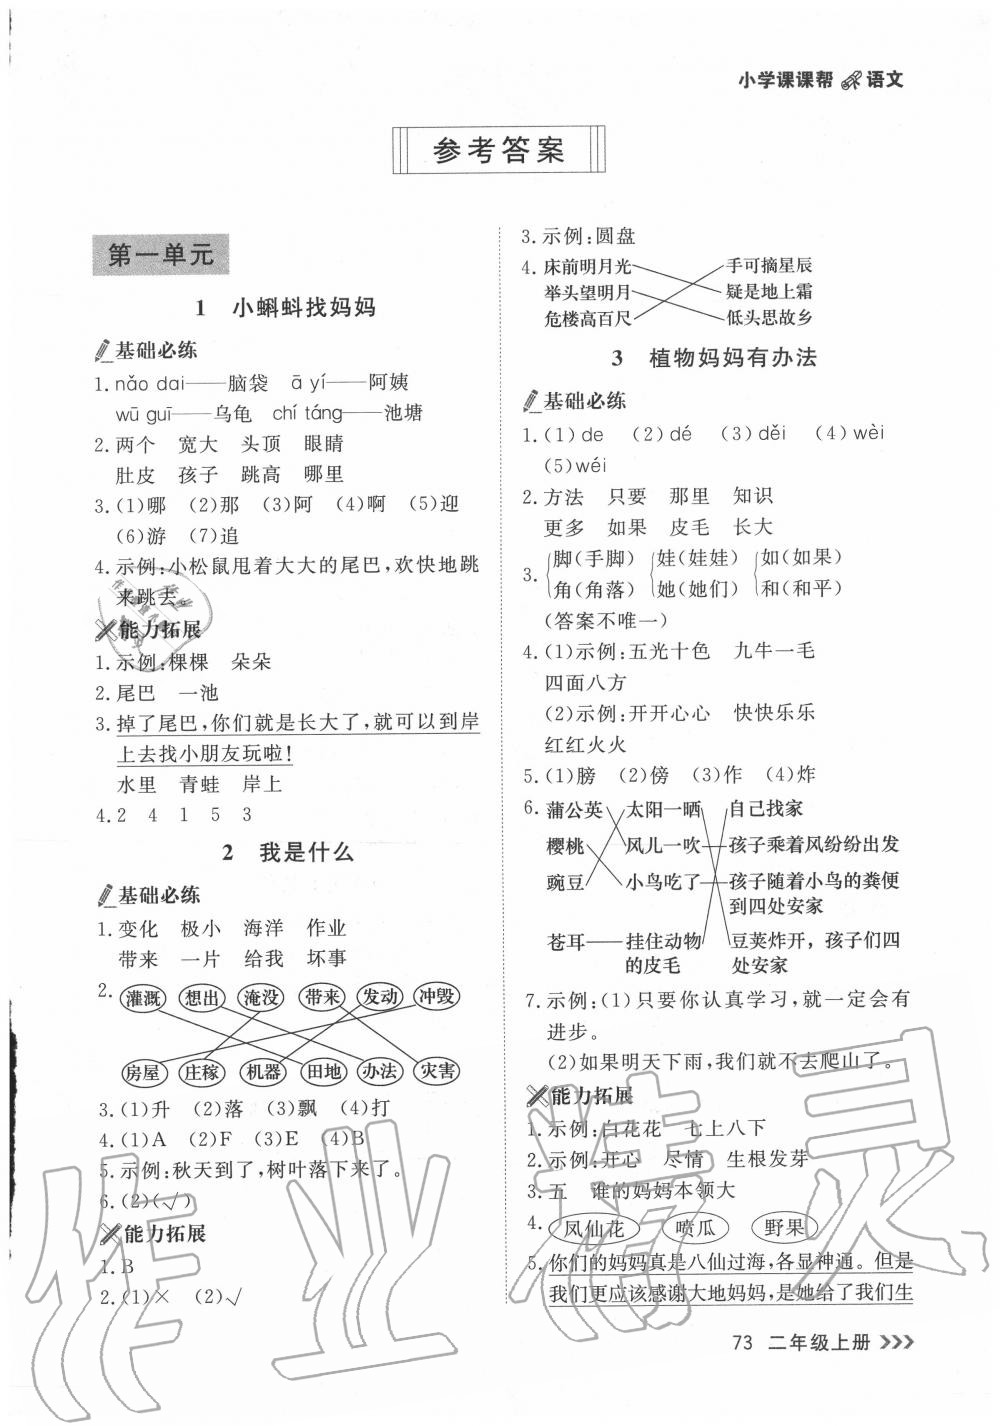 小学课课帮 语文
参考答案
第一单元
1 小蝌蚪找妈妈
基础必练
1. nǎo dai——脑袋 ā yí——阿姨
wū guī——乌龟 chí táng——池塘
2. 两个 宽大 头顶 眼睛
肚皮 孩子 跳高 哪里
3. (1)哪 (2)那 (3)阿 (4)啊 (5)迎
(6)游 (7)追
4. 示例:小松鼠甩着大大的尾巴,欢快地跳
来跳去。
能力拓展
1. 示例:棵棵 朵朵
2. 尾巴 一池
3. 掉了尾巴,你们就是长大了,就可以到岸
上去找小朋友玩啦!
水里 青蛙 岸上
4. 2 4 1 5 3
2 我是什么
基础必练
1. 变化 极小 海洋 作业
带来 一片 给我 坏事
2. 灌溉 想出 淹没 带来 发动 冲毁
房屋 庄稼 机器 田地 办法 灾害
3. (1)升 (2)落 (3)飘 (4)打
4. (1)A (2)F (3)E (4)B
5. 示例:秋天到了,树叶落下来了。
6. (2)(√)
能力拓展
1. B
2. (1)× (2)√
3. 示例:圆盘
4. 床前明月光 手可摘星辰
举头望明月 疑是地上霜
危楼高百尺 低头思故乡
3 植物妈妈有办法
基础必练
1. (1) de (2) dé (3) děi (4) wèi
(5) wéi
2. 方法 只要 那里 知识
更多 如果 皮毛 长大
3. 脚(手脚) 娃(娃娃) 如(如果)
角(角落) 她(她们) 和(和平)
(答案不唯一)
4. (1)示例:五光十色 九牛一毛
四面八方
(2)示例:开开心心 快快乐乐
红红火火
5. (1)膀 (2)傍 (3)作 (4)炸
6. 蒲公英 太阳一晒 自己找家
樱桃 风儿一吹 孩子乘着风纷纷出发
豌豆 小鸟吃了 孩子随着小鸟的粪便
到四处安家
苍耳——挂住动物 豆荚炸开,孩子们四
的皮毛 处安家
7. 示例:(1)只要你认真学习,就一定会有
进步。
(2)如果明天下雨,我们就不去爬山了。
能力拓展
1. 示例:白花花 七上八下
2. 示例:开心 尽情 生根发芽
3. 五 谁的妈妈本领大
4. 凤仙花 喷瓜 野果
5. 你们的妈妈真是八仙过海,各显神通。但是
我们更应该感谢大地妈妈,是她给了我们生
73 二年级上册
作业精灵